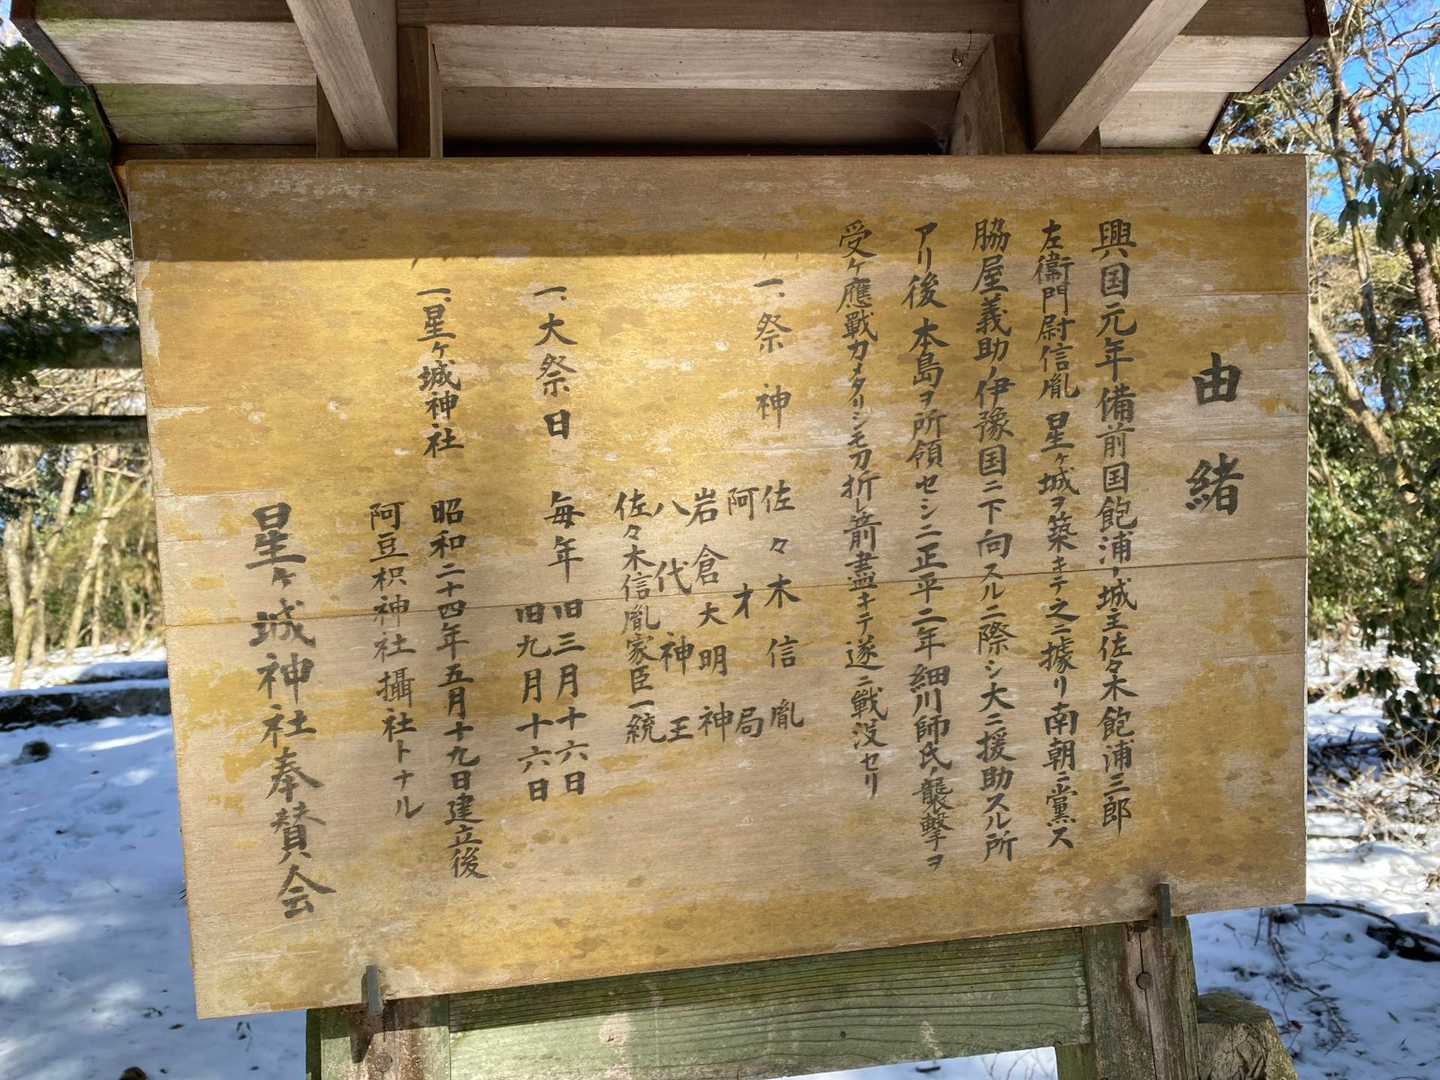 由緒
興国元年備前国飽浦ノ城主佐々木飽浦三郎
左衛門尉信胤星ヶ城ヲ築キテ之ニ據リ南朝ニ黨ス
脇屋義助ノ伊豫国ニ下向スルニ際シ大ニ援助スル所
アリ後本島ヲ所領セシニ正平二年細川師氏ノ襲撃ヲ
受ケ應戰力メタリシモ刀折レ箭盡キテ遂ニ戰没セリ
一、祭神 佐々木信胤
阿才局
岩倉大明神
八代神王
佐々木信胤家臣一統
一、大祭日 毎年 旧三月十六日
旧九月十六日
一、星ヶ城神社 昭和二十四年五月十九日建立後
阿豆枳神社攝社トナル
星ヶ城神社奉賛会